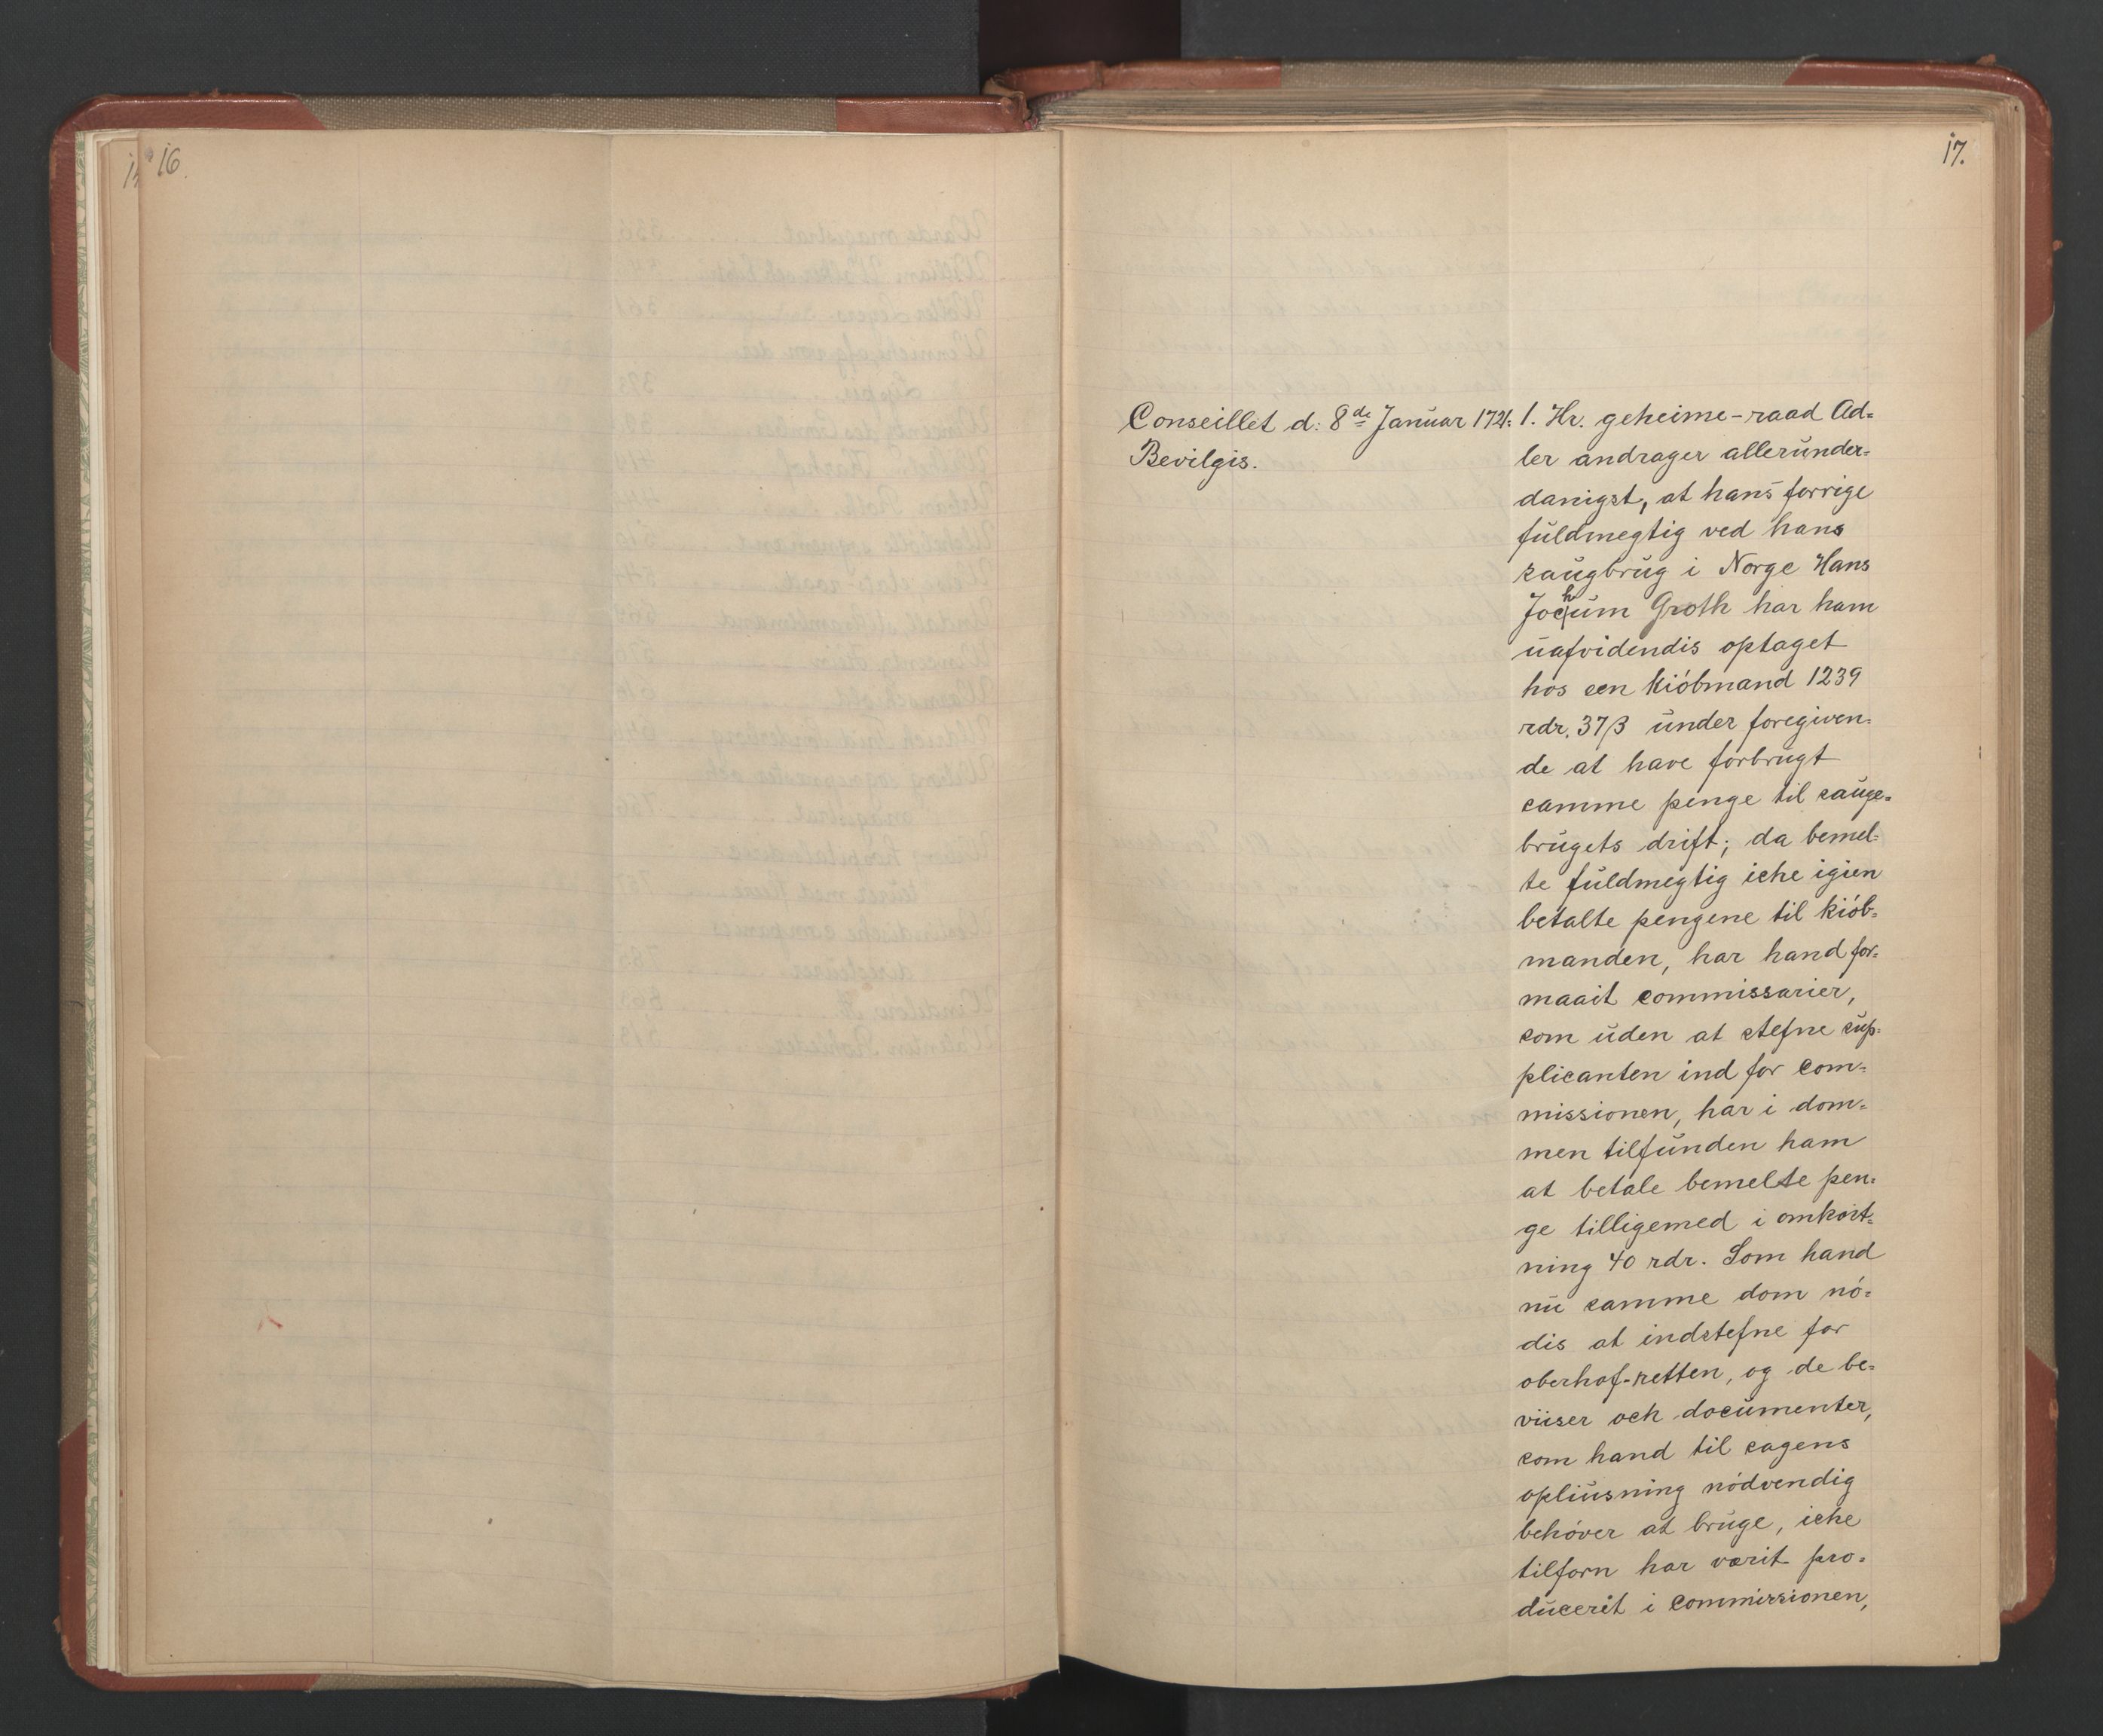 16.
17.
Conseillet d: 8de Januar 1721.
Bevilgis.
1. Hr. geheime-raad Ad=
ler andrager allerunder=
danigst, at hans forrige
fuldmegtig ved hans
saugbrug i Norge Hans
Jochum Groth har ham
uafvidendis optaget
hos een kióbmand 1239
rdr. 37 β under foregiven=
de at have forbrugt
samme penge til sauge=
brugets drift; da bemel=
te fuldmegtig iche igien
betalte pengene til kiób=
manden, har hand for=
maait commissarier,
som uden at stefne sup=
plicanten ind for com=
missionen, har i dom=
men tilfunden ham
at betale bemelte pen=
ge tilligemed i omkost=
ning 40 rdr. Som hand
nu samme dom nó=
dis at indstefne for
oberhof-retten, og de be=
viiser och documenter,
som hand til sagens
opliusning nódvendig
behóver at bruge, iche
tilforn har værit pro=
ducerit i commissionen,